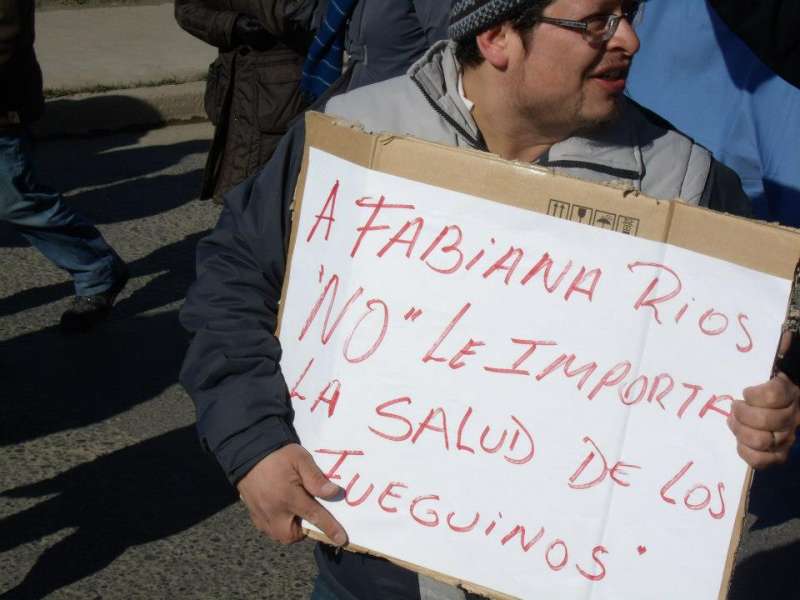 A FABIANA RIOS
"NO" LE IMPORTA
LA SALUD DE LOS
FUEGUINOS"